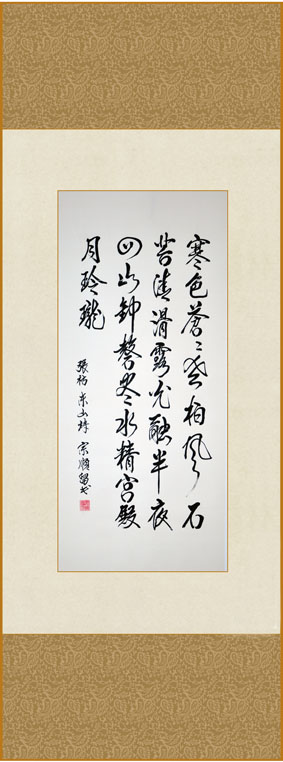 寒色蒼〻老柏風石
苔清滑露光融半夜
四山鈡磬尽水精宮殿
月玲瓏
張祜 东山寺 宗順